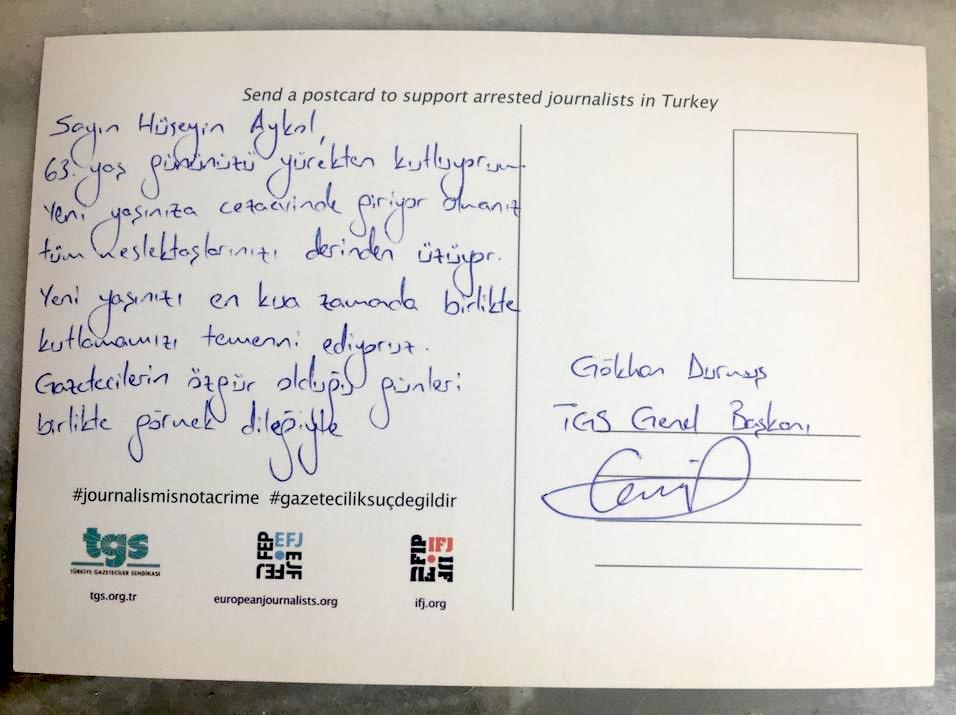 Send a postcard to support arrested journalists in Turkey
Sayın Hüseyin Aykol,
63. yaş gününüzü yürekten kutluyorum
Yeni yaşınıza cezaevinde giriyor olmanız
tüm meslektaşlarınızı derinden üzüyor.
Yeni yaşınızı en kısa zamanda birlikte
kutlamamızı temenni ediyoruz.
Gazetecilerin özgür olduğu günleri
birlikte görmek dileğiyle
#journalismisnotacrime #gazeteciliksuçdegildir
tgs
TÜRKİYE GAZETECİLER SENDİKASI
tgs.org.tr
FEP EFJ
EJF FEJ
europeanjournalists.org
FIP IFJ
ifj.org
Gökhan Durmuş
TGS Genel Başkanı